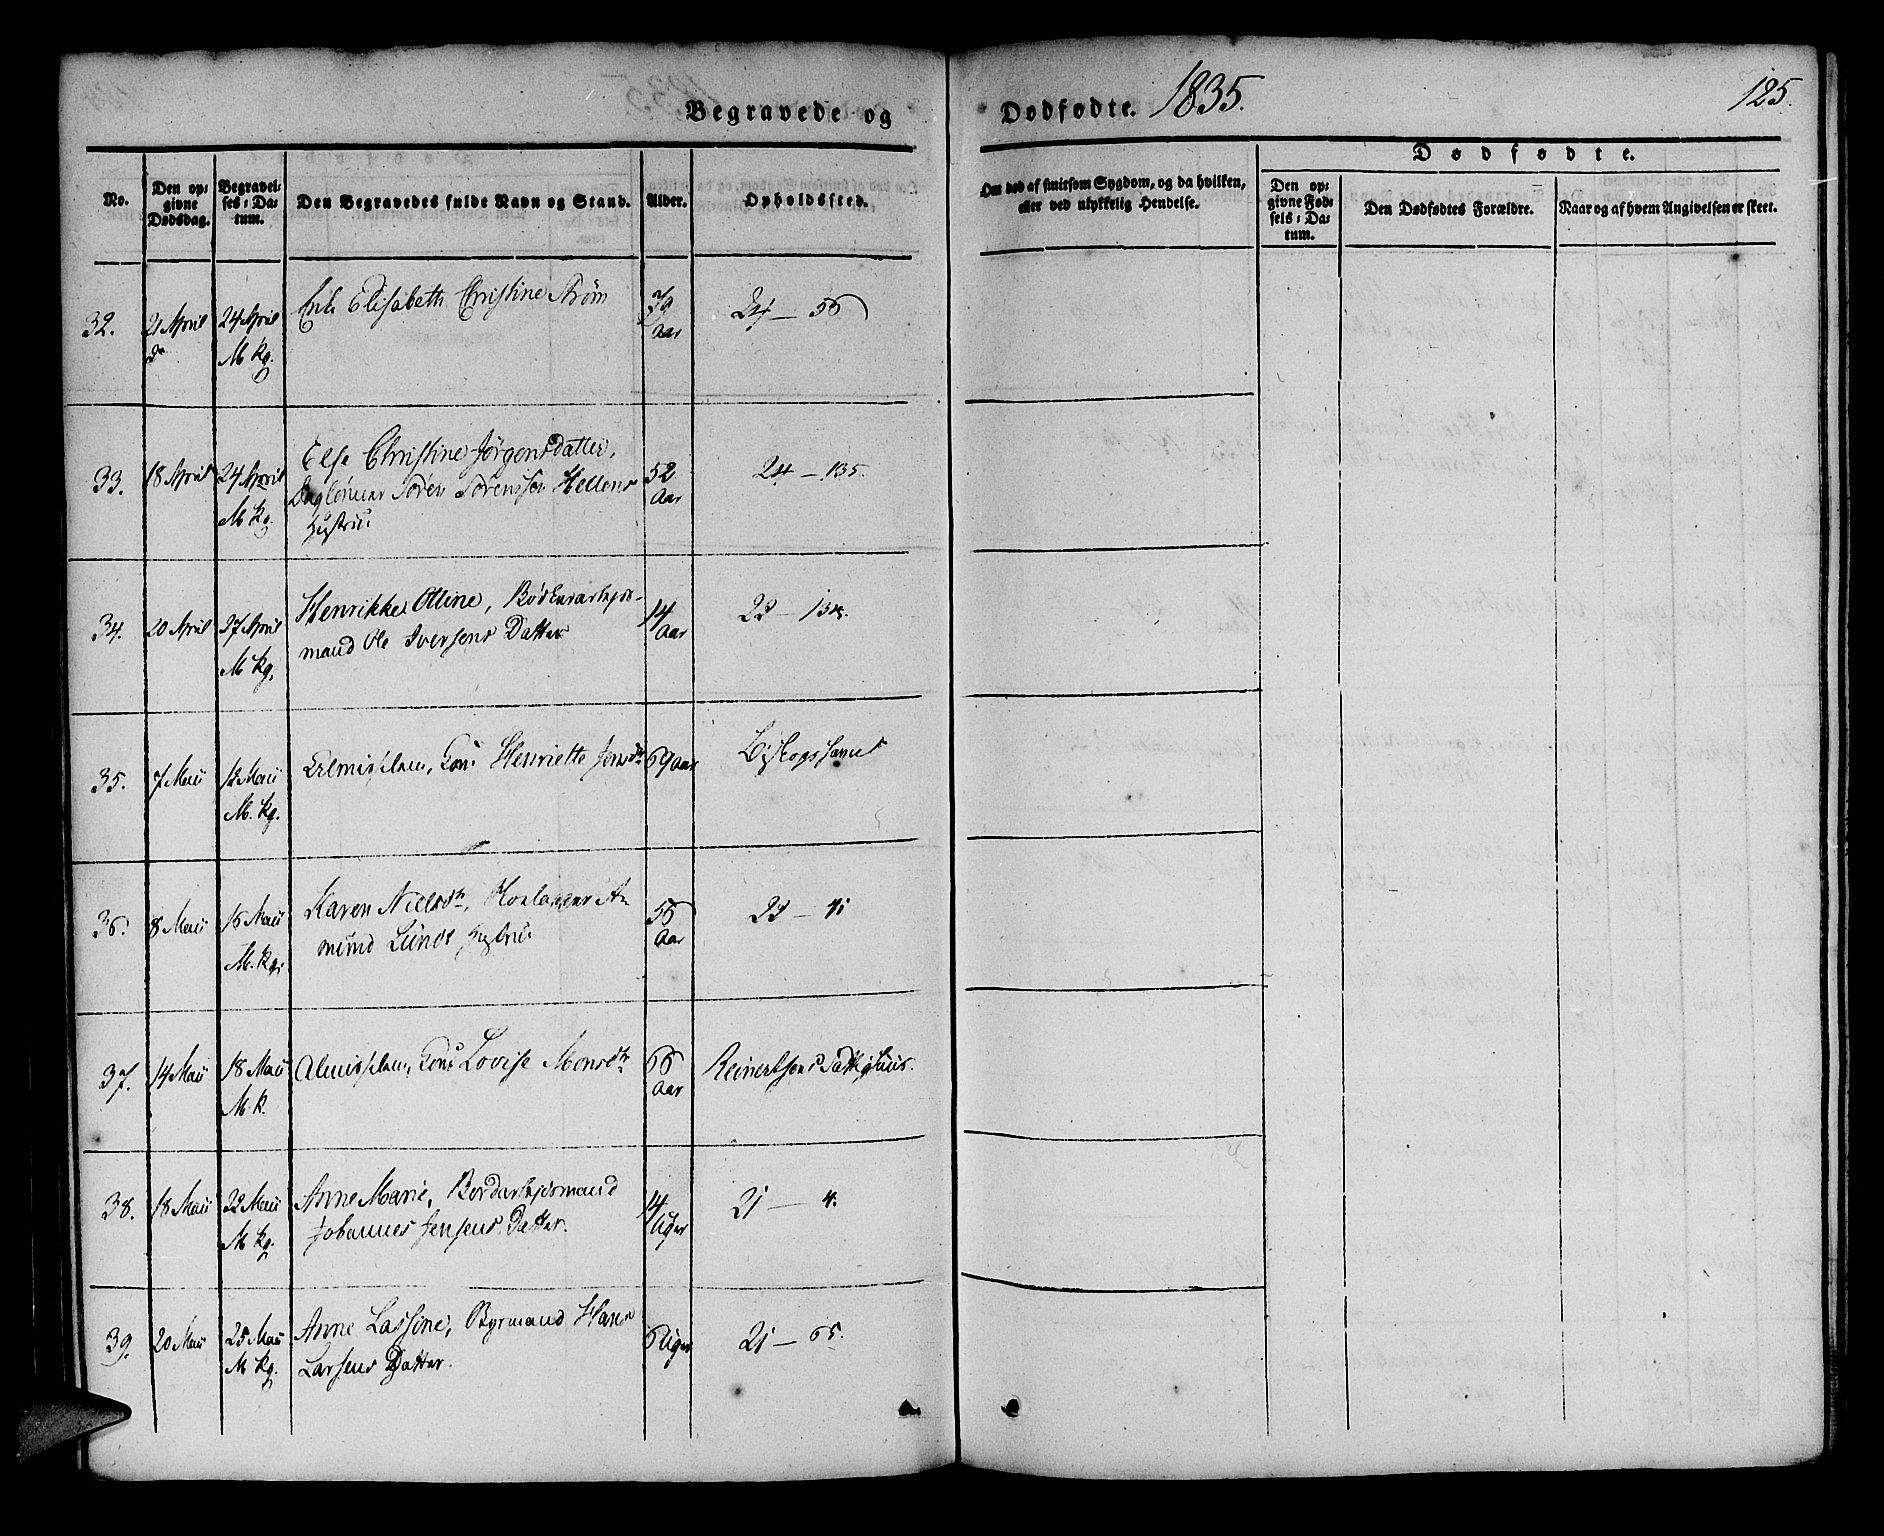 Begravede og
Dødfødte. 1835.
125.
No.
Den opgivne Dødsdag.
Begravelses-Datum.
Den Begravedes fulde Navn og Stand.
Alder.
Opholdssted.
Om død af smitsom Sygdom, og da hvilken,
eller ved ulykkelig Hendelse.
Dødfødte.
Den opgivne Fødsels-Datum.
Den Dødfødtes Forældre.
Naar og af hvem Angivelsen er skeet.
32. 21 April 24 April Elisabeth Christine Strøm 79 24 — 56
M kg. Aar
33. 18 April 24 April Else Christine Jørgensdatter, 52 24 — 135.
M kg. Søren Sørensen Hellens Aar
Hustru
34. 20 April 27 April Henrikke Olline, 14 23 —
M kg. mand Ole Iversens Datter Aar
35. 7 Maii 12 Maii Henriette 69 Aar
M. kg.
36. 8 Maii 15 Maii Karen Nielsd., 56 23 —
M. kg. mund Lunds Hustru Aar
37. 14 Maii 18 Maii Lovise Monsd. 66
M. k. Aar
38. 18 Maii 22 Maii Anne Marie, Bordarbejdsmand 14 21 — 4.
M kg. Johannes Jensens Datter. Uger
39. 20 Maii 25 Maii Anne Lassine, Byemand Hans 6 Uger 21 — 65.
M kg. Larsens Datter.